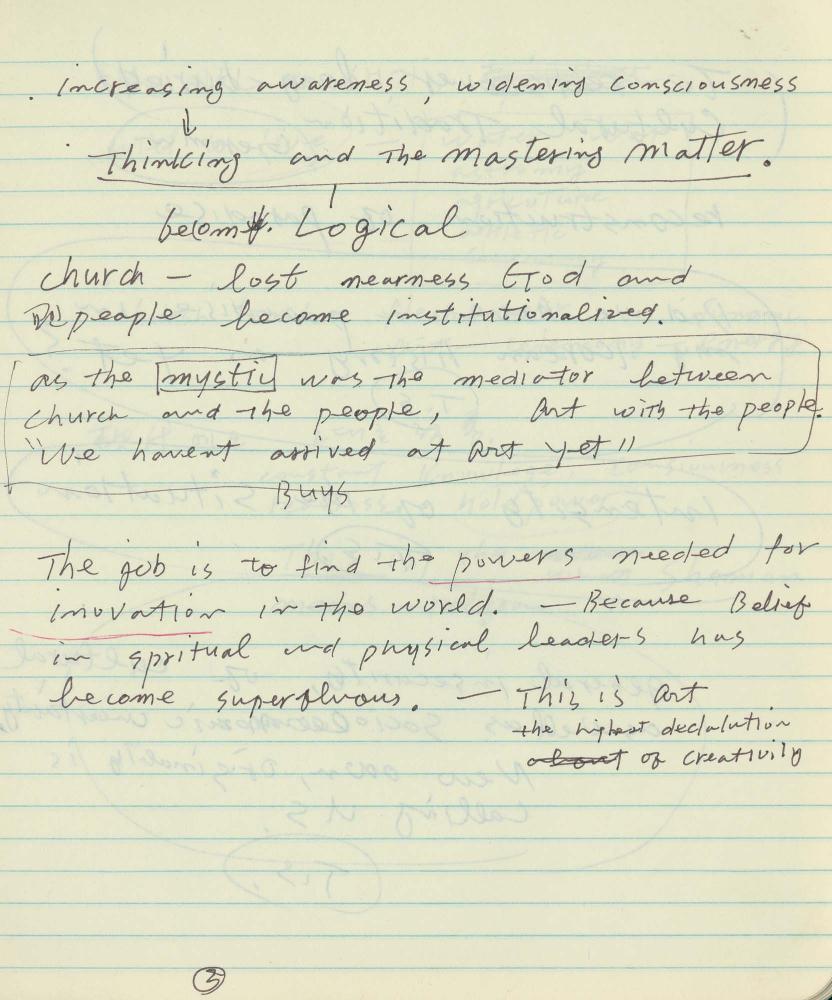 . increasing awareness, widening consciousness
↓
Thinking and the mastering matter.
Logical
church – lost nearness God and
peaple become institutionalized.
as the mystic was the mediator between
church and the people, Art with the people.
"We havent arrived at art yet"
Buys
The job is to find the powers needed for
inovation in the world. – Because Belief
in spritual and physical leaders has
become superfluous. – This is Art
the highest declalution
about of creativity
3